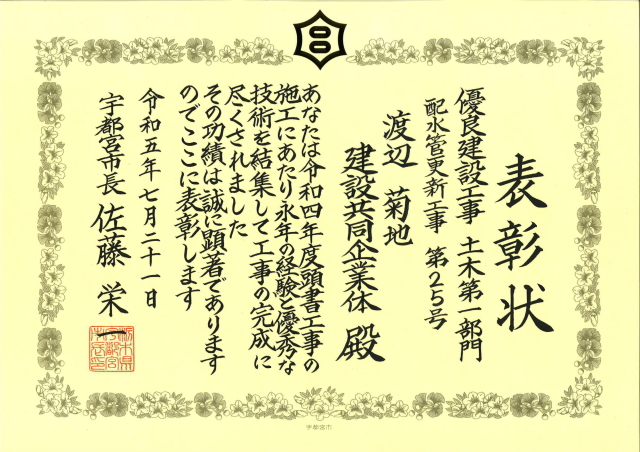 表彰状
優良建設工事 土木第一部門
配水管更新工事 第25号
渡辺 菊地
建設共同企業体 殿
あなたは令和四年度頭書工事の
施工にあたり永年の経験と優秀な
技術を結集して工事の完成に
尽くされました
その功績は誠に顕著であります
のでここに表彰します
令和五年七月二十一日
宇都宮市長 佐藤 栄一
宇都宮市